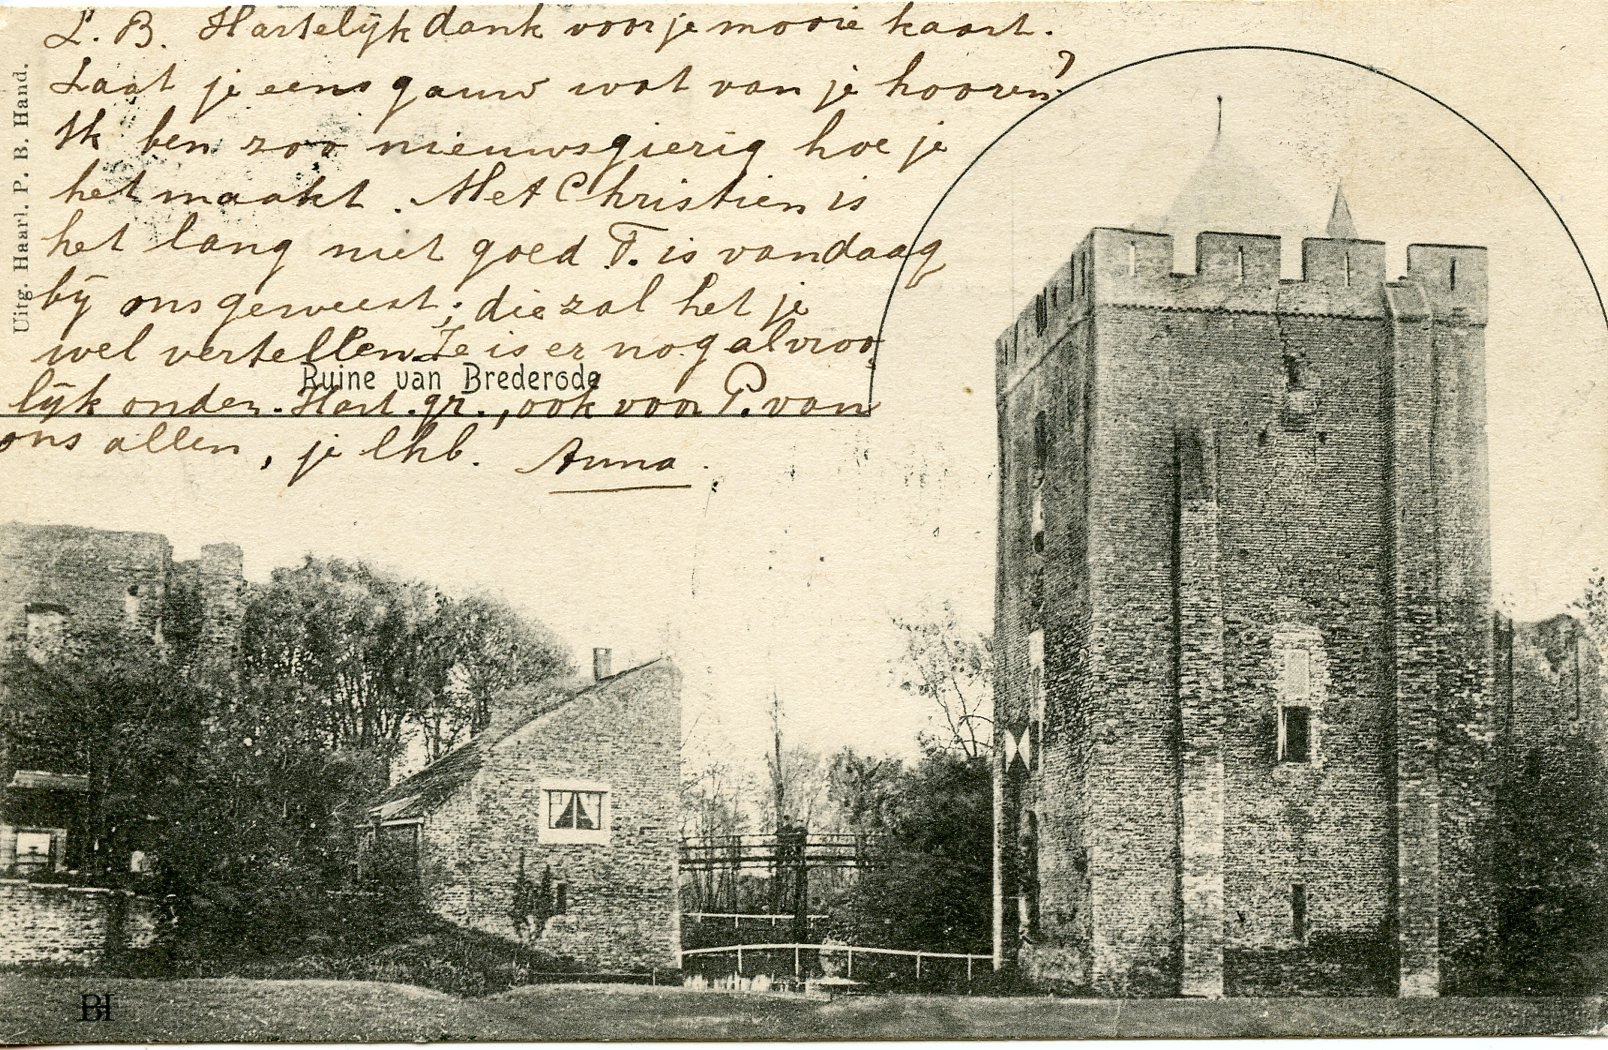 L. B. Hartelijk dank voor je mooie kaart.
Laat je eens gauw wat van je hooren?
Ik ben zoo nieuwsgierig hoe je
het maakt. Met Christien is
het lang niet goed T. is vandaag
bij ons geweest; die zal het je
wel vertellen. Ze is er nog al vroo
lijk onder. Hart. gr., ook voor P. van
ons allen, je lhb. Anna.
Ruine van Brederode
Uitg. Haarl. P. B. Hand.
BH